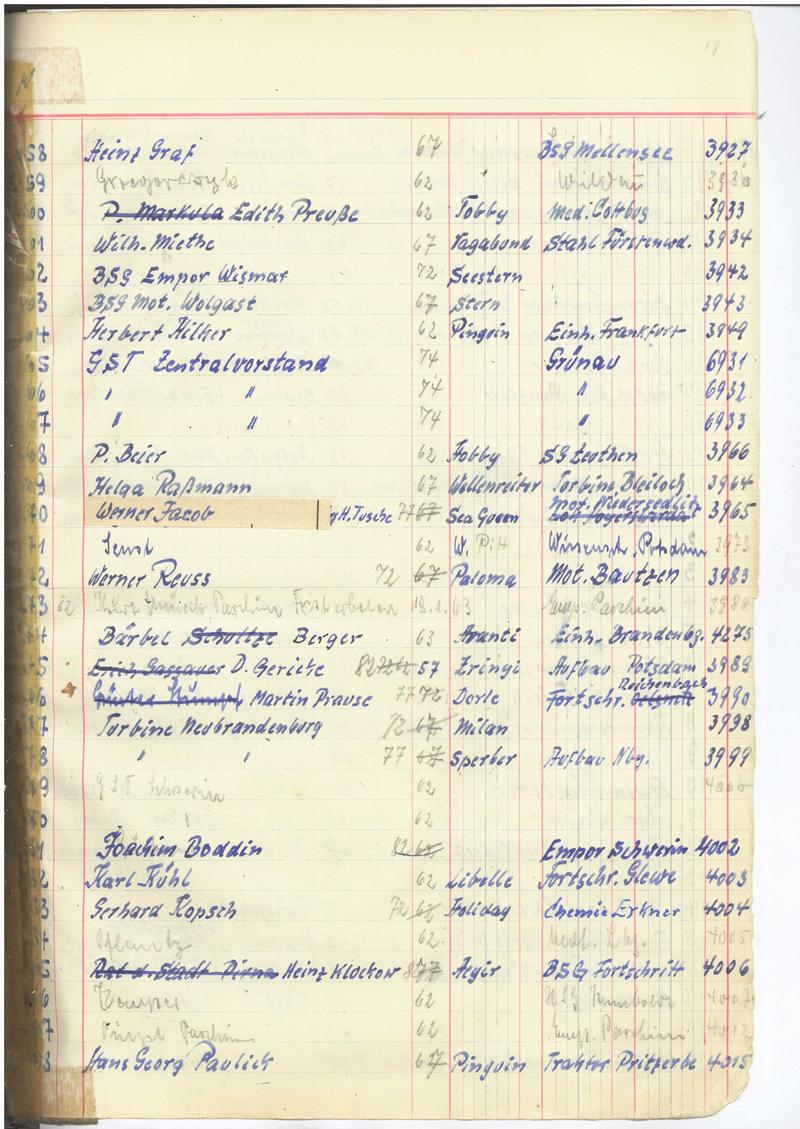 18
58 Heinz Graf 67 BSG Mellensee 3927
59 62 Wildau 3930
60 P. Markula Edith Preuße 62 Tobby Med. Cottbus 3933
61 Wilh. Miethe 67 Vagabund Stahl Fürstenwd. 3934
62 BSG Empor Wismar 72 Seestern 3942
63 BSG Mot. Wolgast 67 Stern 3943
64 Herbert Hilker 62 Pinguin Einh. Frankfort 3949
65 GST Zentralvorstand 74 Grünau 6931
66 " " 74 " 6932
67 " " 74 " 6933
68 P. Beier 62 Fobby SG Zeuthen 3966
69 Helga Raßmann 67 Wellenreiter Turbine Bleiloch 3964
70 Werner Jacob H. Tusche 77 67 Sea Queen Mot. Niedersedlitz 3965
71 62 W. Pitt Wissensch. Potsdam 3973
72 Werner Reuss 72 67 Paloma Mot. Bautzen 3983
273 62 Parchim 18.1.63 Emp. Parchim 3988
74 Bärbel Schultze Berger 63 Avanti Einh. Brandenbg. 4275
5 Erich Gassauer D. Gericke 82 72 62 57 Zringi Aufbau Potsdam 3989
76 Günter Martin Prause 77 72 Dorle Fortschr. Reichenbach 3990
77 Turbine Neubrandenburg 72 67 Milan 3998
78 " " 77 67 Sperber Aufbau Nbg. 3999
79 GST Schwerin 62 4000
80 " 62
81 Joachim Boddin 82 62 Empor Schwerin 4002
82 Karl Kühl 62 Libelle Fortschr. Glewe 4003
83 Gerhard Kopsch 72 62 Holiday Chemie Erkner 4004
84 62 4005
5 Rat d. Stadt Pirna Heinz Klockow 77 Aegir BSG Fortschritt 4006
6 Kemper 62 HSG Humboldt 4007
7 Parchim 62 Emp. Parchim 4012
8 Hans Georg Paulick 67 Pinguin Traktor Pritzerbe 4015